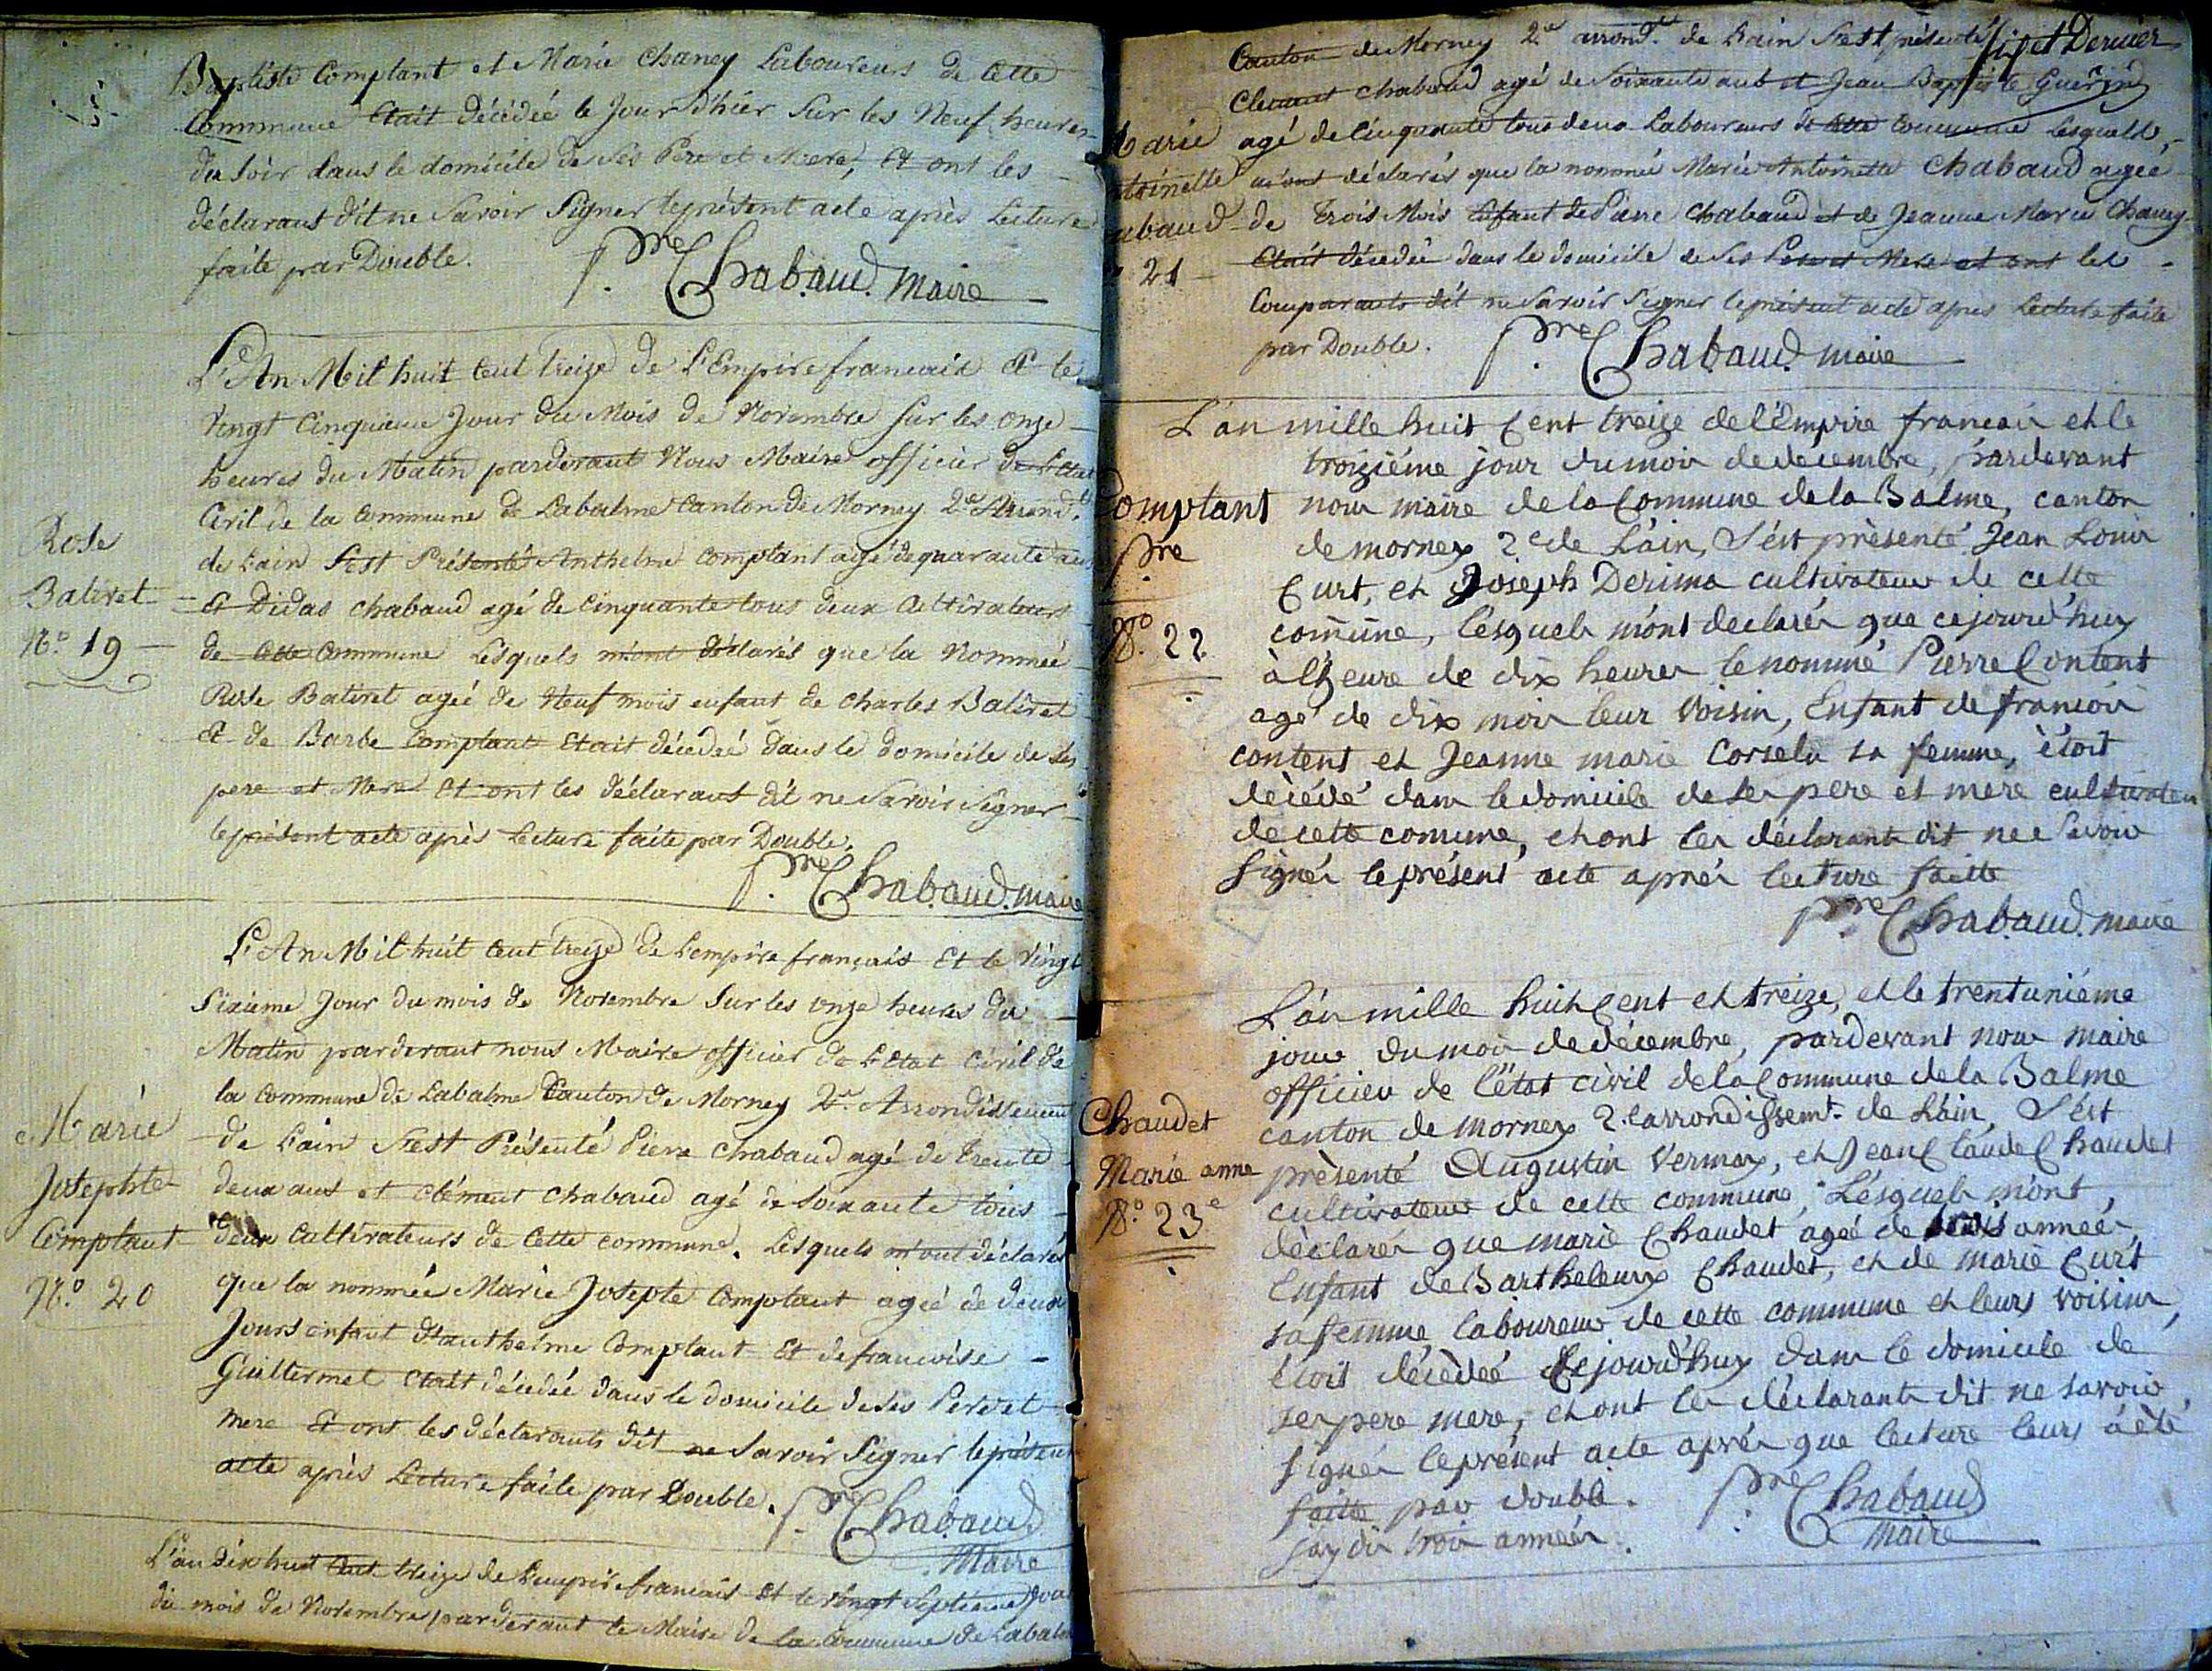 Baptiste Comptant et Marie Chaney Laboureurs de Cette
Commune Etait décédée le Jour d'hier Sur les Neuf heures
du Soir dans le domicile de Ses Pere et Mere, Et ont les
déclarants dit ne Savoir Signer le présent acte après Lecture
faite par Double.
Pre Chabaud. Maire
L'An Mil huit Cent treize de L'Empire francais Et le
Vingt Cinquieme Jour du Mois de Novembre Sur les onze
heures du Matin pardevant Nous Maire officier de L'Etat
Civil de la Commune de Labalme Canton de Morney 2e Arrond.t
Rose
de Lain S'est Présenté Anthelme Comptant agé de quarante ans
Balivet
Et Didas Chabaud agé de Cinquante tous deux Cultivateurs
N.o 19
de Cette Commune Lesquels m'ont déclarés que la Nommée
Rose Balivet agée de Neuf mois enfant de Charles Balivet
Et de Barbe Comptant Etait décédée dans le domicile de Ses
pere et Mere Et ont les déclarants dit ne Savoir Signer
le présent acte après Lecture faite par Double.
Pre Chabaud. maire
L'An Mil huit Cent treize de L'empire français Et le Vingt
Sixieme Jour du mois de Novembre Sur les onze heures du
Matin pardevant nous Maire officier de L'Etat Civil de
la Commune de Labalme Canton de Morney 2e. Arrondissement
Marie
de Lain S'est Présenté Pierre Chabaud agé de Trente
Josephte
deux ans et Clément Chabaud agé de Soixante tous
Comptant
deux Cultivateurs de Cette commune. Lesquels m'ont déclarés
N.o 20
que la nommée Marie Josephte Comptant agée de deux
Jours enfant d'anthelme Comptant Et de francoise
Guillermet Etait décédée dans le domicile de Ses Pere et
mere Et ont les déclarants dit ne Savoir Signer le présent
acte après Lecture faite par Double.
Pre Chabaud
Maire
L'an Dix huit Cent treize de L'empire francais Et le Vingt Septieme Jour
du mois de Novembre pardevant le Maire de la Commune de Labalme
Canton de Morney 2e arrond.t de Lain S'est présenté
et Dernier
Clement Chabaud agé de Soixante ans et Jean Baptiste Guérin
Marie
agé de Cinquante tous deux Laboureurs de Cette Commune Lesquels
ntoinette
m'ont déclarés que la nommée Marie Antoinette Chabaud agée
abaud
de Trois Mois Enfant de Pierre Chabaud et de Jeanne Marie Chaney
21
Etait décédée dans le domicile de Ses Pere et Mere et ont les
Comparants dit ne Savoir Signer le présent acte après Lecture faite
par Double.
Pre Chabaud. maire
L'an mille huit Cent treize de l'Empire francais et le
troiziéme jour du mois de decembre, pardevant
Comptant
nous maire de la Commune de la Balme, canton
Pre
de mornex 2e de L'ain, S'ést présenté Jean Louis
Curt, et Joseph Derima cultivateur de cette
No. 22
commune, lesquels m'ont declarés que cejourd'huy
à l'heure de dix heures le nommé Pierre Content
agé de dix mois leur Voisin, Enfant de francois
content et Jeanne marie Corselu sa femme, étoit
décédé dans le domicile de ses pere et mere cultivateur
de cette comune, et ont les déclarants dit ne Savoir
Signer le présent acte aprés lecture faitte
Pre Chabaud. maire
L'an mille huit Cent et treize, et le trentuniéme
jour du mois de décembre, pardevant nous maire
officier de l'état civil de la Commune de la Balme
Chaudet
canton de mornex 2. arrondissemt. de L'ain, S'ést
Marie anne
présenté Augustin Vermox, et Jean Claude Chaudet
No. 23e
cultivateur de cette commune, Lésquels m'ont
déclarés que marie Chaudet agée de trois années,
Enfant de Bartheleumy Chaudet, et de marie Curt
sa femme laboureur de cette commune et leurs voisins,
étoit décédée cejourd'huy dans le domicile de
ses pere mere, et ont les déclarants dit ne savoir
signer le présent acte aprés que lecture leurs a été
faitte par double.
Pre Chabaud
Maire
jay dis trois années.